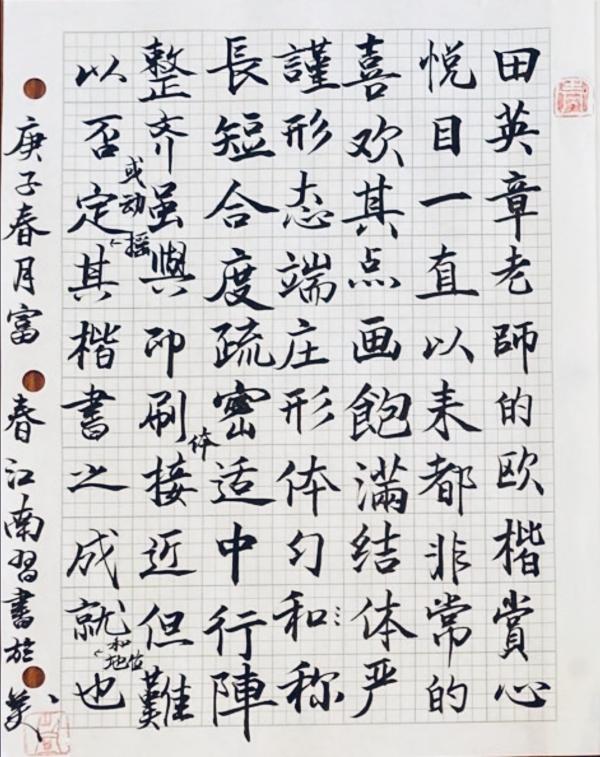 田英章老師的欧楷賞心
悦目一直以来都非常的
喜欢其点画飽滿结体严
謹形态端庄形体匀和称
長短合度疏密适中行陣
整齐虽與印刷体接近但難
以否定或动摇其楷書之成就和地位也
庚子春月富春江南習書於